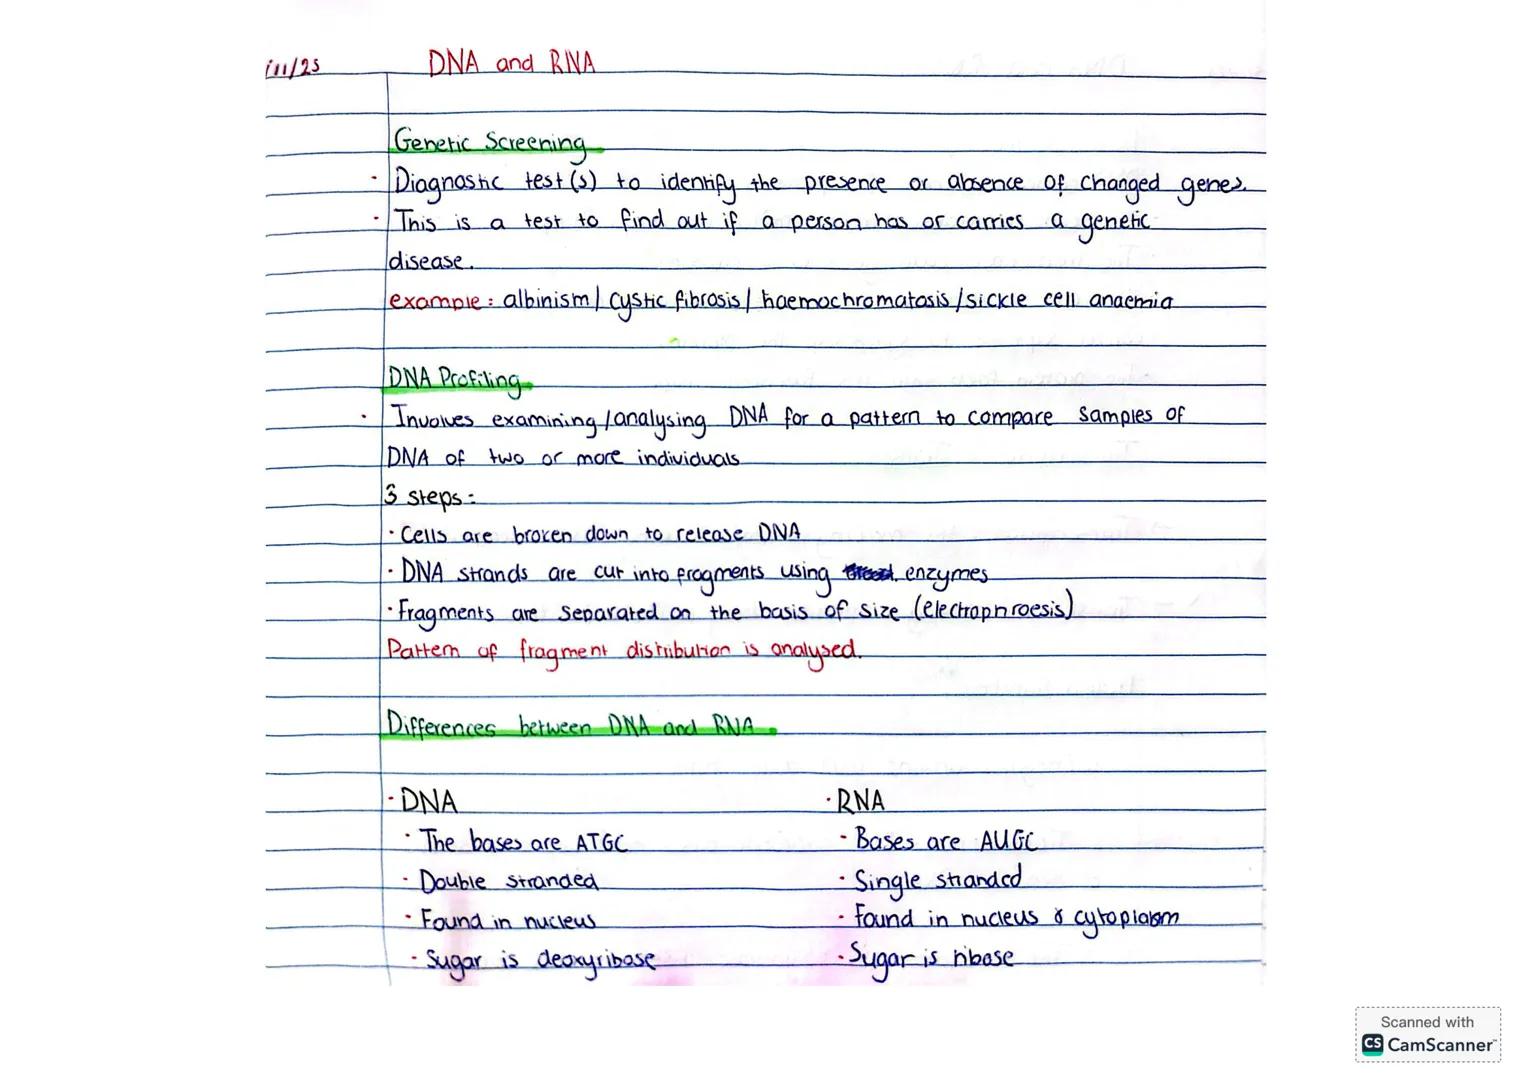 DNA and RNA
Genetic Screening
· Diagnostic test(s) to identify the presence or absence of changed genes.
· This is a test to find out if a person has or carries a genetic
disease.
example: albinism/ cystic fibrosis/ haemochromatosis/sickle cell anaemia
DNA Profiling
· Involves examining/analysing DNA for a pattern to compare samples of
DNA of two or more individuals
3 steps:
· Cells are broken down to release DNA
· DNA strands are cut into fragments using enzymes
· Fragments are separated on the basis of size (electrophroesis)
Pattern of fragment distribution is analysed.
Differences between DNA and RNA
· DNA · RNA
· The bases are ATGC · Bases are AUGC
· Double stranded · Single stranded
· Found in nucleus · Found in nucleus & cytoplasm
· Sugar is deoxyribose · Sugar is ribose
Scanned with
CS CamScanner